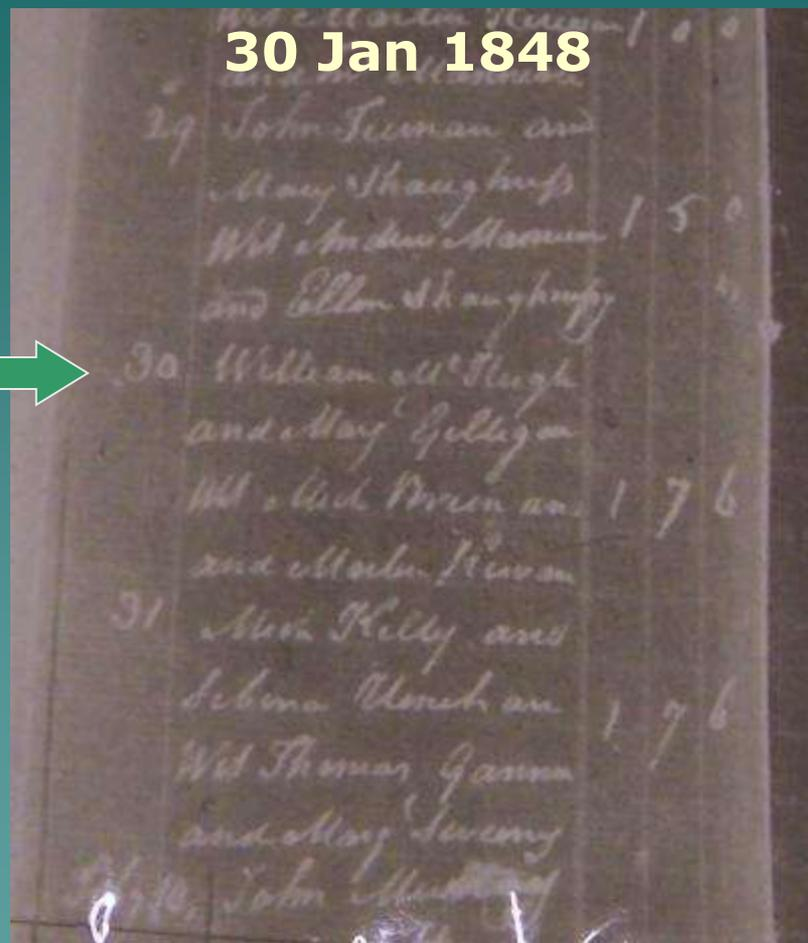 30 Jan 1848
Wit Martin Kirwan 1 0 0
and
29 John Tiernan and
Mary Shaughness
Wit Andrew 1 5 0
and Ellen Shaughnessy
30 William McHugh
and Mary Gilligan
Wit Mich Brien an 1 7 6
and Martin Kirwan
31 Mich Kelly and
Sibina
1 7 6
Wit Thomas Gannon
and Mary Sweeny
John